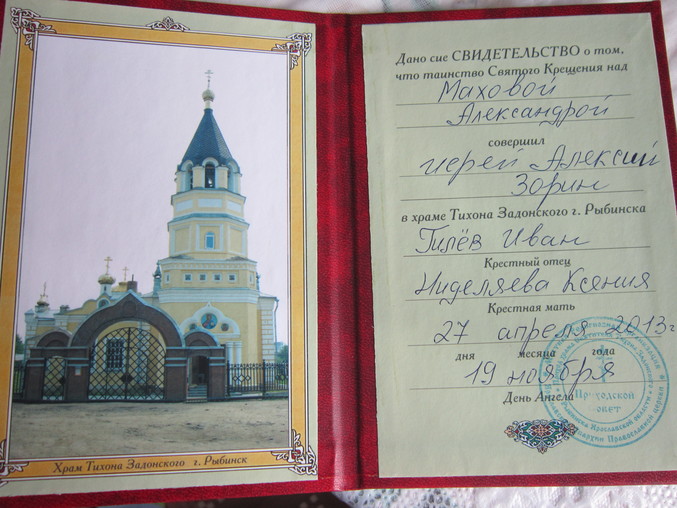 Храм Тихона Задонского г. Рыбинск
Дано сие СВИДЕТЕЛЬСТВО о том,
что таинство Святого Крещения над
Маховой
Александрой
совершил
иерей Алексий
Зорин
в храме Тихона Задонского г. Рыбинска
Гилёв Иван
Крестный отец
Ниделяева Ксения
Крестная мать
27 апреля 2013г
дня месяца года
19 ноября
День Ангела
Приходской
совет